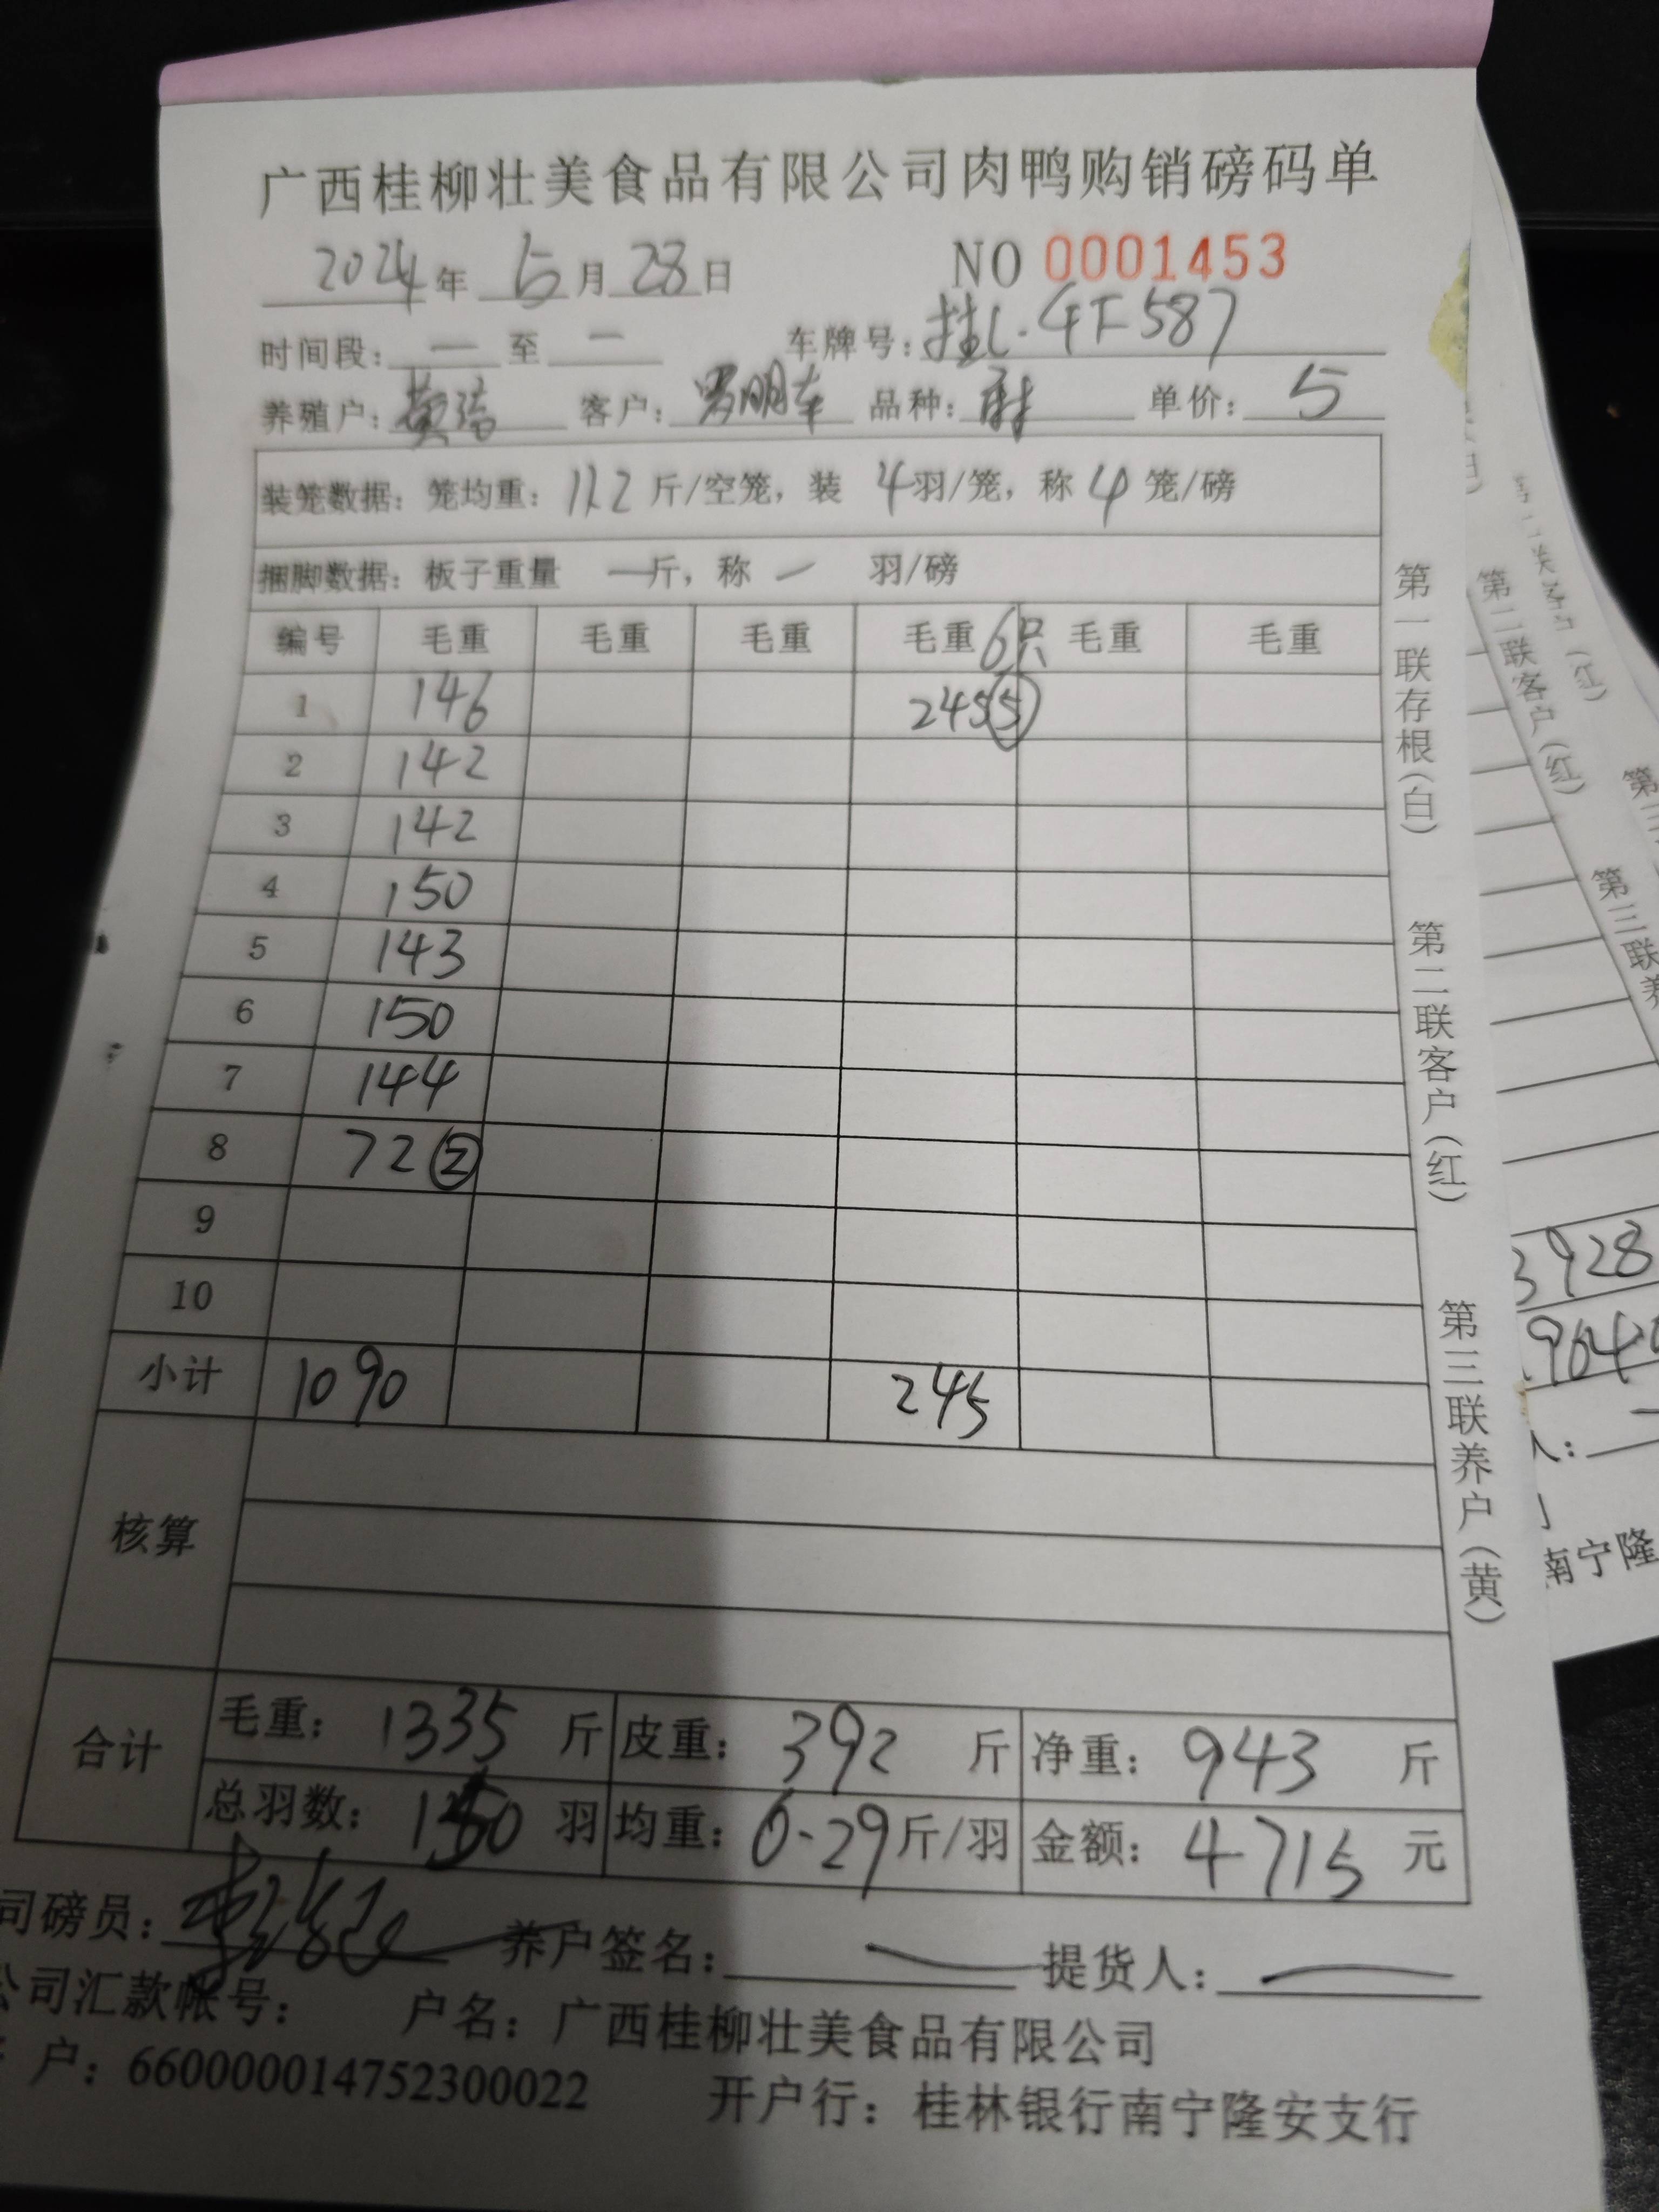 广西桂柳壮美食品有限公司肉鸭购销磅码单
2024年 5月28日 NO 0001453
时间段: 一 至 一 车牌号: 桂L·4F587
养殖户: 黄 客户: 罗明车 品种: 单价: 5
装笼数据: 笼均重: 11.2 斤/空笼, 装 4羽/笼, 称 4 笼/磅
捆脚数据: 板子重量 一斤, 称 一 羽/磅
编号 毛重 毛重 毛重 毛重 6只 毛重 毛重
1 146 245⑤
2 142
3 142
4 150
5 143
6 150
7 144
8 72②
9
10
小计 1090 245
核算
合计 毛重: 1335 斤 皮重: 392 斤 净重: 943 斤
总羽数: 150 羽 均重: 6.29斤/羽 金额: 4715 元
司磅员: 养户签名: 一 提货人: 一
公司汇款帐号: 户名: 广西桂柳壮美食品有限公司
户: 660000014752300022 开户行: 桂林银行南宁隆安支行
第一联存根(白) 第二联客户(红) 第三联养户(黄)
第二联客户(红)
第三联养
3928
9040
人:
南宁隆